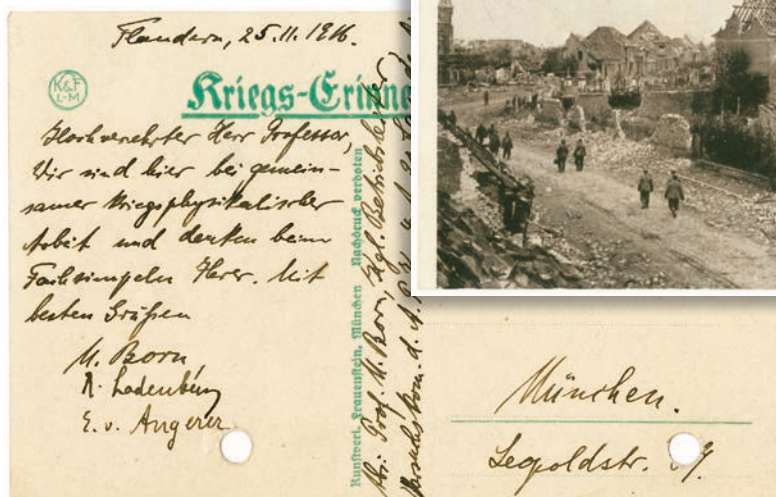 Flandern, 25.11.1916.
K&F
L-M
Kriegs-Erinne
Hochverehrter Herr Professor,
Wir sind hier bei gemein-
samer kriegsphysikalischer
Arbeit und denken beim
Fachsimpeln Ihrer. Mit
besten Grüßen
M. Born
R. Ladenburg
E. v. Angerer
Kunstverl. Frauenstein, München Nachdruck verboten
Abs: Prof. M. Born, Kgl. Betriebsleiter,
d. A.
München.
Leopoldstr.